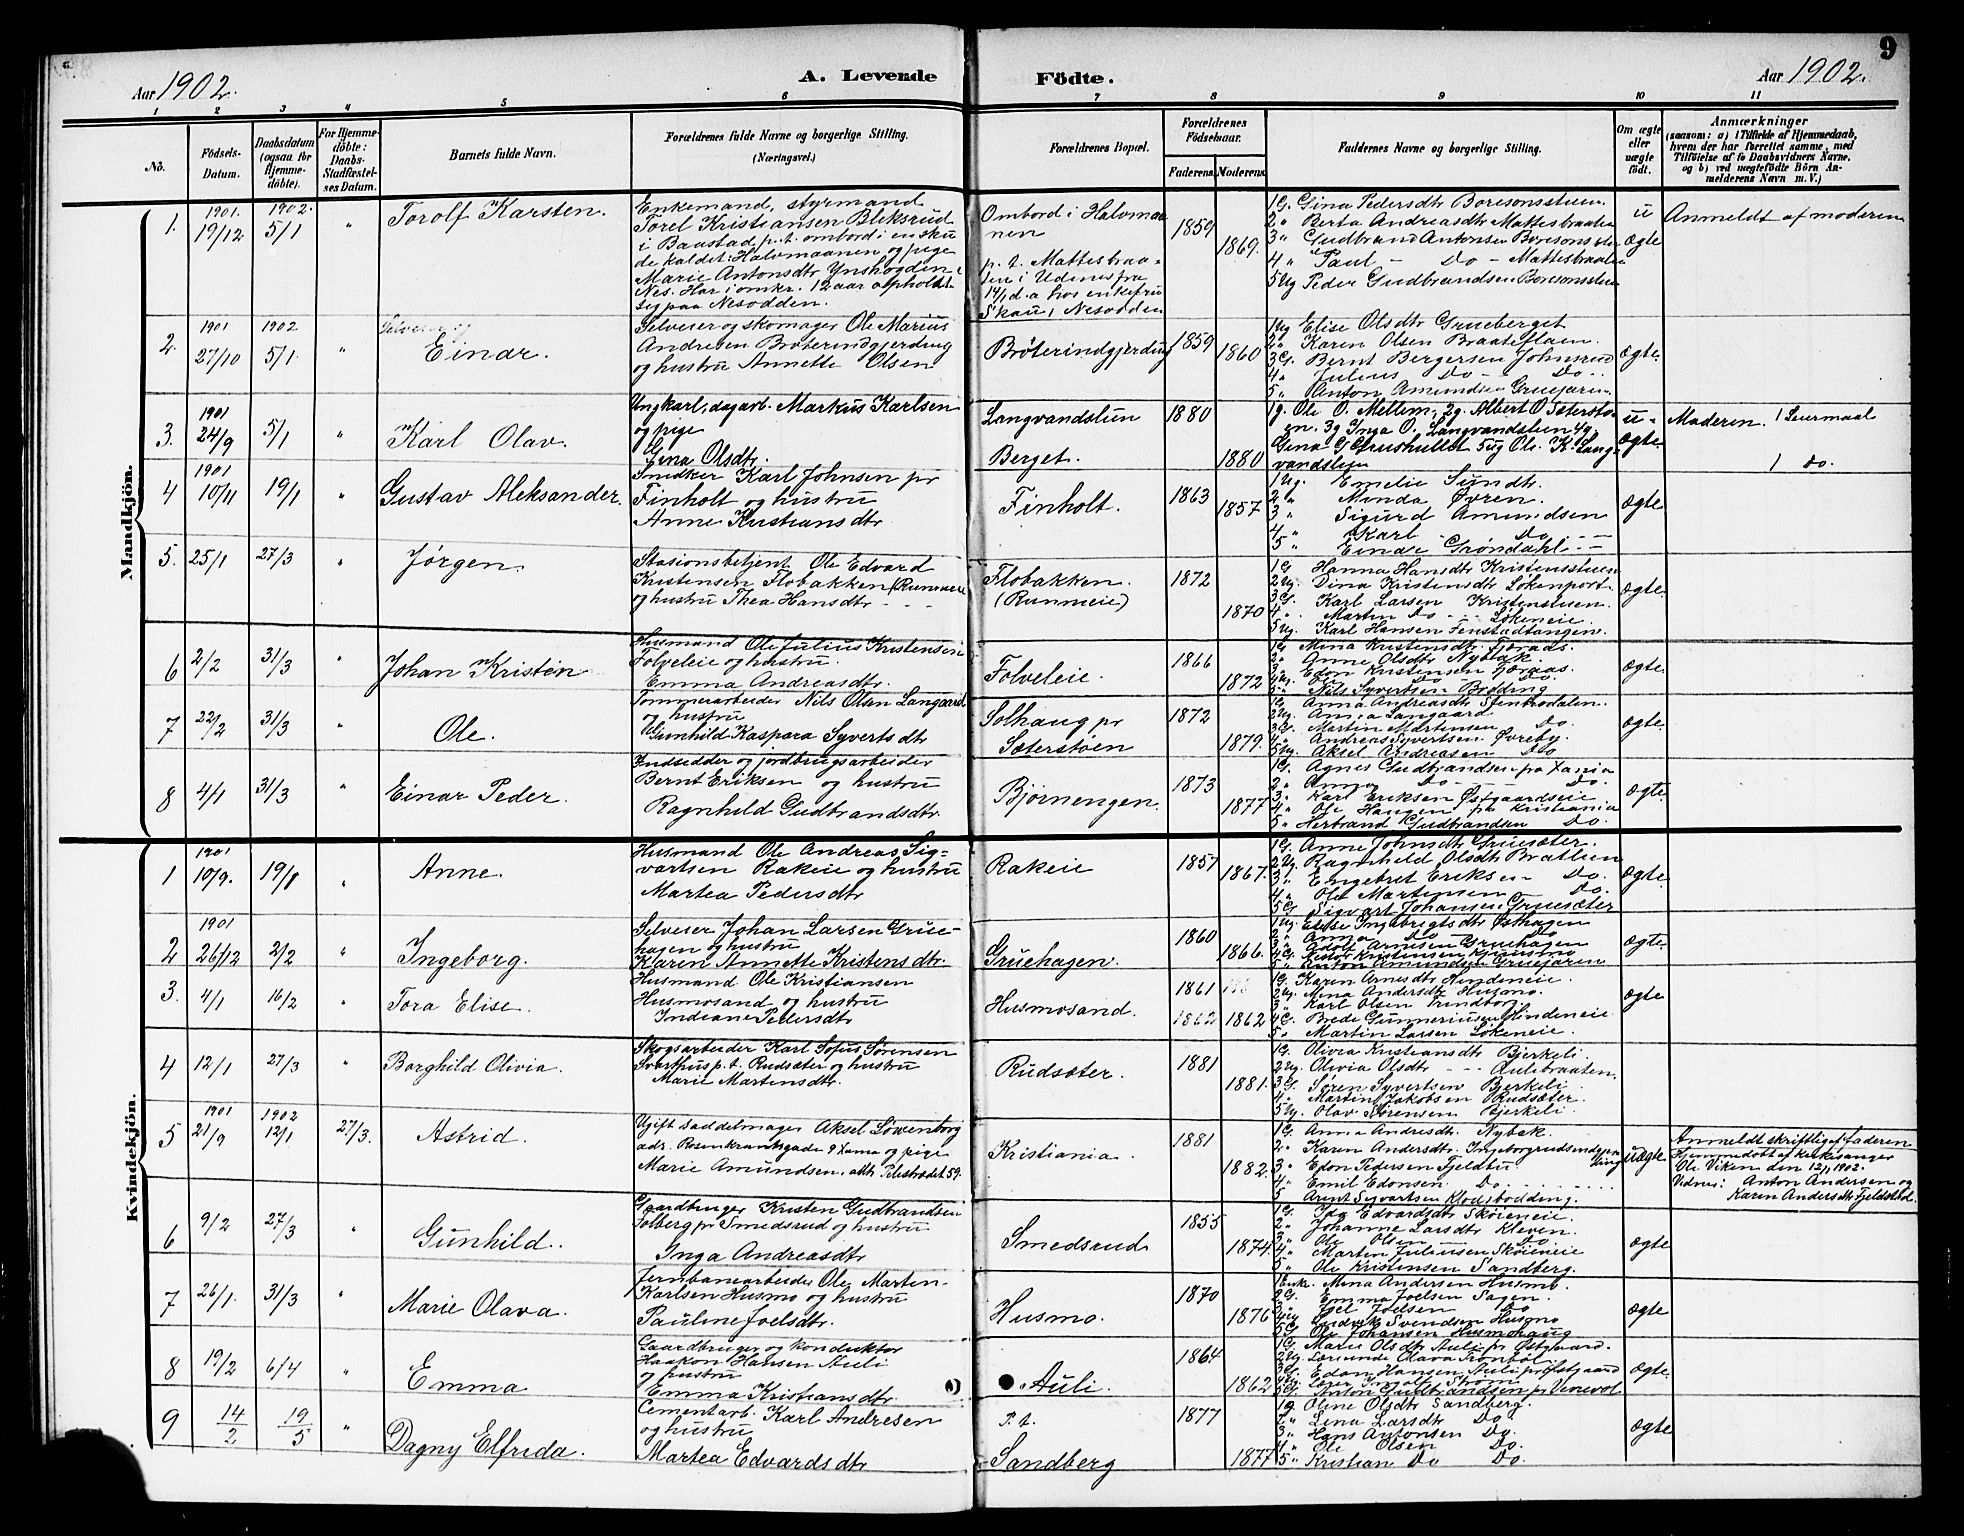 9
Aar 1902.
A. Levende
Födte.
Aar 1902.
1 2 3 4 5 6 7 8 9 10 11
No.
Födsels-Datum.
Daabsdatum (ogsaa for Hjemme-döbte).
For Hjemme-döbte: Daabs-Stadfæstel-ses Datum.
Barnets fulde Navn.
Forældrenes fulde Navne og borgerlige Stilling.
(Næringsvei.)
Forældrenes Bopæl.
Forældrenes Födselsaar.
Faderens. Moderens.
Faddernes Navne og borgerlige Stilling.
Om ægte eller uægte födt.
Anmærkninger
(saasom: a) i Tilfælde af Hjemmedaab,
hvem der har forrettet samme, med
Tilföielse af to Daabsvidners Navne,
og b) ved uægtefödte Börn An-
melderens Navn m. V.)
Mandkjön.
1. 1901. 19/12 1902. 5/1 " Torolf Karsten.
Enkemand, styrmand
Torel Kristiansen Bleksrud
i Baastad p.t. ombord i en sku
de kaldet: Halvmaanen og pige
Marie Antonsdtr Ynshogden i
Nes. Har i omkr. 12 aar opholdt
sig paa Nesodden.
Ombord i Halvmaa
nen
p. t. Mattisbraa-
ten i Udenes fra
14/1 d.a hos enkefru
Skau, Nesodden
1859 1869.
1G. Gina Pedersdtr Boresonsstuen.
2 " Berta Andreasdtr Mattisbraaten
3 " Gudbrand Antonsen Boresonsstu
4 " Paul - Do - Mattisbraaten
5 Ug Peder Gudbrandsen Boresonsstuen
u ægte
Anmeldt af moderen
2. 1901 27/10 1902 5/1. " Selveier og
Einar.
Selveier og skomager Ole Marius
Andresen Bröterindgjerding
og hustru Annette Olsen
Bröterindgjerding
1859 1860
1 Ug Elise Olsdtr Grueberget
2 " Karen Olsen Braateflaen.
3 G. Bernt Bergersen Johnsrud
4 " Julius Do - Do -
5 " Anton Amundsen Gruejaren
ægte.
3. 1901 24/9 5/1 " Karl Olav.
Ungkarl, dagarb. Markus Karlsen
og pige
Gina Olsdtr.
Langvandslun
Berget.
1880 1880
1g. Ole O. Mellem, 2g. Albert OÆtersto-
en. 3g Inga O. Langvandslien 4g.
Gina G Grushullet 5ug Ole K. Lang-
vandslien
u- ægte
Moderen 1 Leiermaal
1 do.
4 1901 10/11 19/1 " Gustav Aleksander.
Snidker Karl Johnsen pr
Finholt og hustru
Anne Kristiansdtr
Finholt.
1863 1857
1 Ug. Emelie Sundtr.
2 " Minda Øvren.
3 " Sigurd Amundsen
4 " Karl - Do - -
5 " Einar Grøndahl - -
ægte
5. 25/1 27/3 " Jørgen
Stasionsbetjent Ole Edvard
Kristensen Flobakken (Runmeie
og hustru Thea Hansdtr - - -
Flobakken.
(Runmeie)
1872 1870
1 G Hanna Hansdtr Kristensstuen
2 Ug. Dina Kristensdtr Løkenport
3 G. Karl Larsen Kristenstuen.
4 " Martin Do - - Løkeneie.
5 Ug. Karl Hansen Fenstadtangen.
ægte.
6 2/2 31/3 " Johan Kristen
Husmand Ole Julius Kristensen
Folveleie og hustru.
Emma Andreasdtr.
Folveleie.
1866 1872
1 G Mina Kristensdtr Fjøraas.
2 " Anne Olsdtr Nybak.
3 " Edon Kristensen Fjøraas.
4 Ug. Ole Do Do.
5 " Nils Syvertsen Bodding
ægte.
7 22/2 31/3 " Ole.
Tømmerarbeider Nils Olsen Langaard
og hustru
Gunhild Kaspara Syvertsdtr
Solhaug pr
Sæterstøen
1872 1879.
1 G Anna Andreasdtr Stenbrodalen.
2 Ug. Anna Langaard Do.
3 G. Martin Martinsen
4 " Andreas Syvertsen Øvreby.
5 Ug. Aksel Andreasen Do
ægte.
8 4/1 31/3 " Einar Peder.
Indsidder og jordbrugsarbeider
Bernt Eriksen og hustru
Ragnhild Gudbrandsdtr.
Bjørnengen.
1873 1877
1 G. Agnes Gudbrandsen fra Xania
2 " Anna Do - Do.
3 " Karl Eriksen Østgaardseie
4 " Ole Hansen fra Kristiania
5 " Herbrand Gudbrandsen Do.
ægte.
Kvindekjön.
1 1901 10/9. 19/1 " Anne.
Husmand Ole Andreas Sig=
vartsen Rakeie og hustru
Martea Pedersdtr
Rakeie
1857 1867.
1 G. Anne Johnsdtr Gruesæter.
2 Ug. Ragnhild Olsdtr Bratlien
3 " Engebret Eriksen Do.
4 " Ole Martensen - Do.
5 G Sigvart Johansen Gruesæter
ægte.
2 1901 26/12 2/2 " Ingeborg.
Selveier Johan Larsen Grue-
hagen og hustru
Karen Annette Kristensdtr.
Gruehagen.
1860 1866.
1 Ug. Elise Ingebrigtsdtr Østhagen
2 " Anna Do Do
3 " Adolf Arnesen Gruehagen
4 G
5 " Anton Amundsen Gruejaren
ægte.
3. 4/1 16/2 " Tora Elise.
Husmand Ole Kristiansen
Husmosand og hustru
Indiane Pedersdtr
Husmosand.
1861 1862 1862
1 G. Karen Arnesdtr Hindeneie.
2 Ug. Mina Andersdtr Husmo.
3 " Karl Olsen Trindborg.
4 G. Brede Gunneriusen Hindeneie
5 " Martin Larsen Løkeneie.
ægte
4 12/1 27/3 " Borghild Olivia.
Skogsarbeider Karl Sofus Sørensen
Svarthus p.t. Rudsæter og hustru
Marie Martensdtr.
Rudsæter.
1881 1881.
1 G. Olivia Kristiansdtr Bjerkeli.
2 Ug. Olivia Olsdtr - - - Aulibraaten.
3 G. Søren Syvertsen Bjerkeli.
4 " Martin Jakobsen Rudsæter.
5 Ug. Olav Sørensen Bjerkeli.
5 1901 21/9 1902 12/1 27/3. Astrid.
Ugift saddelmager Aksel Löwenborg
adr. Rosenkrantsgade 9 Xania og pige
Marie Amundsen, adr. Pilestrædet 59.
Kristiania.
1881 1882.
1 G. Anna Andresdtr. Nybak.
2 " Karen Andersdtr. Ingeborgrudsindgjer-
ding
3 " Edon Pedersen Fjeldstu.
4 " Emil Edonsen. Do. - - - -
5 " Arent Syvartsen Klodsbodding.
uægte
Anmeldt skriftlig af faderen
Hjemmedøbt af kirkesanger
Ole Viken den 12/1 1902.
Vidner: Anton Andersen og
Karen Andersdtr Fjeldstad.
6 9/2 27/3 " Gunhild.
Gaardbruger Kristen Gudbrandsen
Solberg pr Smedsrud og hustru
Inga Andreasdtr
Smedsrud
1855 1874
1 G. Ida Edvardsdtr Skøieneie.
2 " Johanne Larsdtr Kleven.
3 " Ole Olsen Do
4 " Martin Juliusen Skøieneie
5 " Ole Kristensen Sandberg.
ægte
7 26/1. 31/3 " Marie Olava.
Jernbanearbeider Ole Marten-
Karlsen Husmo og hustru
Pauline Joelsdtr.
Husmo.
1870 1876
1 Enke. Mina Andersen Husmo.
2 G. Emma Joelsen Sagen.
3 " Joel Joelsen Do
4 Ug Ludvik Svendsen Husmo
5 G. Ole Johansen Husmohaug
ægte
8 19/2 6/4 " Emma
Gaardbruger og konduktør
Haakon Hansen Auli
og hustru
Emma Kristiansdtr
Auli.
1864 1862
1 G. Marie Olsdtr Auli pr Østgaard.
2 Ug. Olava Trønbøl.
3 G. Edon Hansen Auli pr Østgaard
4 Ug. Ingolf Strøm
5 G. Anton Gudbrandsen pr Venevol
ægte.
9 14/2 19/5 " Dagny Elfrida.
Cementarb. Karl Andresen
og hustru
Martea Edvardsdtr
P. t.
Sandberg
1877 1877
1 g Oline Olsdtr Sandberg.
2 " Lina Larsdtr Do.
3 " Hans Antonsen Do.
4 " Ole Olsen Do.
5 " Kristian Do Do.
ægte